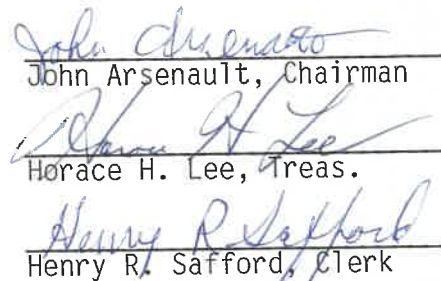 John Arsenault
John Arsenault, Chairman
Horace H Lee
Horace H. Lee, Treas.
Henry R Safford
Henry R. Safford, Clerk